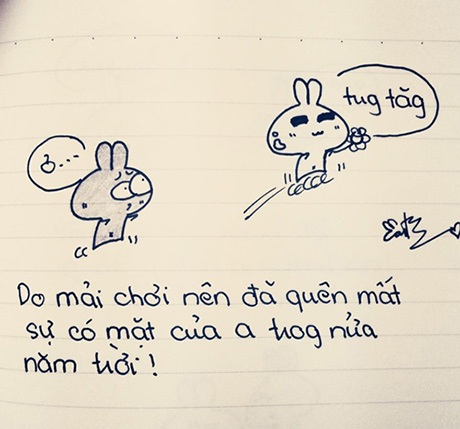 tug tăg
ơ....
Do mải chơi nên đã quên mất
sự có mặt của a trog nửa
năm trời!